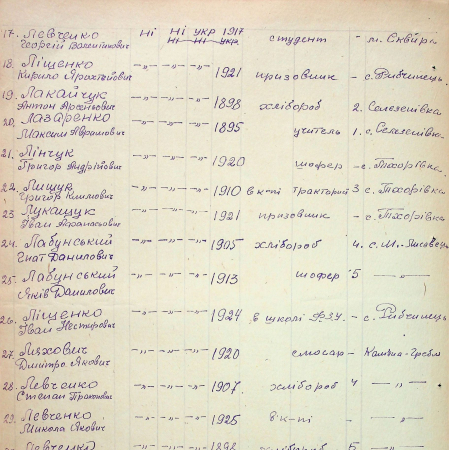 17. Левченко ні ні укр 1917 студент - м. Сквира
Георгій Валентинович ні ні укр
18. Ліщенко -"- -"- -"- 1921 призовник - с. Рибчинець
Кирило
19. Лакайчук -"- -"- -"- 1898 хлібороб 2. Селезенівка
Антон Арсеньович
20. Лазаренко -"- -"- -"- 1895 учитель 1. с. Селезенівка
Максим Аврамович
21. Лінчук -"- -"- -"- 1920 шофер - с. Тхорівка
Григор Андрійович
22. Лищук -"- -"- -"- 1910 в к-пі тракторист 3 с. Тхорівка
Григор Климович
23 Лукащук -"- -"- -"- 1921 призовник - с. Тхорівка
Іван Афанасьович
24. Лабунський -"- -"- -"- 1905 хлібороб 4. с. М.-
Гнат Данилович
25. Лабунський -"- -"- -"- 1913 шофер 5 -"-
Яків Данилович
26. Ліщенко -"- -"- -"- 1924 в школі ФЗУ - с. Рибчинець
Іван Нестирович
27. Ляхович -"- -"- -"- 1920 слюсар - Камьна-Гребля
Дмитро Якович
28. Левченко -"- -"- -"- 1907 хлібороб 4 -"-
Степан Прокопович
29. Левченко -"- -"- -"- 1925 в к-пі -
Микола Якович
Левченко -"- -"- -"- 1898 хлібороб 5 -"-